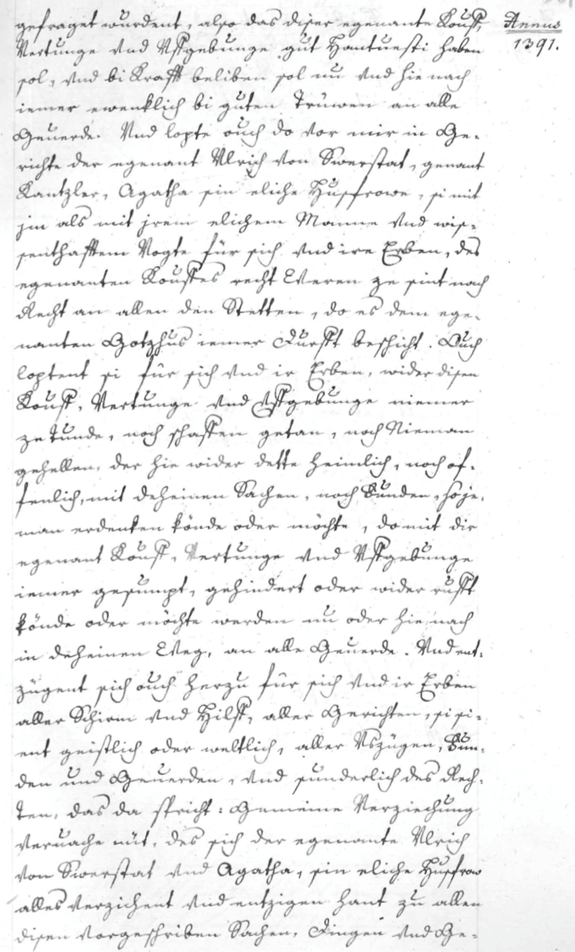 gefraget wurdent, also das diser egenante Kouff, Annus
Vertunge vnd Vffgebunge gut Hantuesti haben 1391.
sol, vnd bi Krafft beliben sol nu vnd hie nach
iemer ewenklich bi guten Trüwen an alle
Geuerde. Vnd lopte ouch do vor mir in Ge-
richte der egenant Vlrich von Swerstat, genant
Kantzler, Agatha sin eliche Husfrowe, si mit
jm als mit jrem elichem Manne vnd wis-
senthafftem Vogte für sich vnd ire Erben, des
egenanten Kouffes recht Weren ze sint nach
Recht an allen den Stetten, do es dem ege-
nanten Gotzhus iemer Durfft beschicht. Ouch
loptent si für sich vnd ir Erben, wider disen
Kouff, Vertunge vnd Vffgebunge niemer
ze tunde, noch schaffen getan, noch Nieman
gehellen, der hie wider dette heimlich, noch of-
fenlich, mit deheinen Sachen, noch Fünden, so je-
man erdenken könde oder möchte, do mit dir
egenant Kouff, Vertunge vnd Vffgebunge
iemer gesumpt, gehindert oder wider rufft
könde oder möchte werden nu oder hie nach
in deheinen Weg, an alle Geuerde. Vnd ent-
zügent sich ouch herzu für sich vnd ir Erben
aller Schirm vnd Hilff, aller Gerichten, si si-
ent geistlich oder weltlich, aller Vszügen, Fün-
den und Geuerden, vnd sunderlich des Rech-
ten, das da spricht: Gemeine Verziechung
veruache nüt, des sich der egenante Vlrich
von Swerstat vnd Agatha, sin eliche Husfrow
alles verzichent vnd entzigen hant zu allen
disen vorgeschriben Sachen, Dingen vnd Ge-